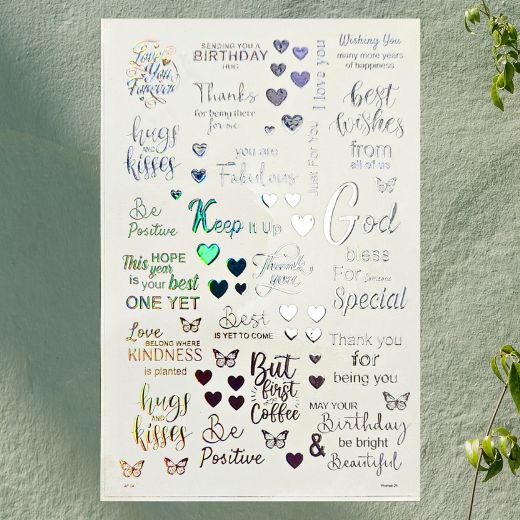 Love
You
Forever
SENDING YOU A
BIRTHDAY
HUG
I love you
Wishing You
many more years
of happiness
Thanks
for being there
for me
best
wishes
from
all of us
hugs
AND
kisses
you are
Fabulous
Just For You
Be
Positive
Keep It Up
God
bless
For Someone
Special
This HOPE
year
is your best
ONE YET
Thank
you
Best
IS YET TO COME
Love
BELONG WHERE
KINDNESS
is planted
Thank you
for
being you
But
first
Coffee
hugs
AND
kisses
Be
Positive
MAY YOUR
Birthday
be bright
&
Beautiful